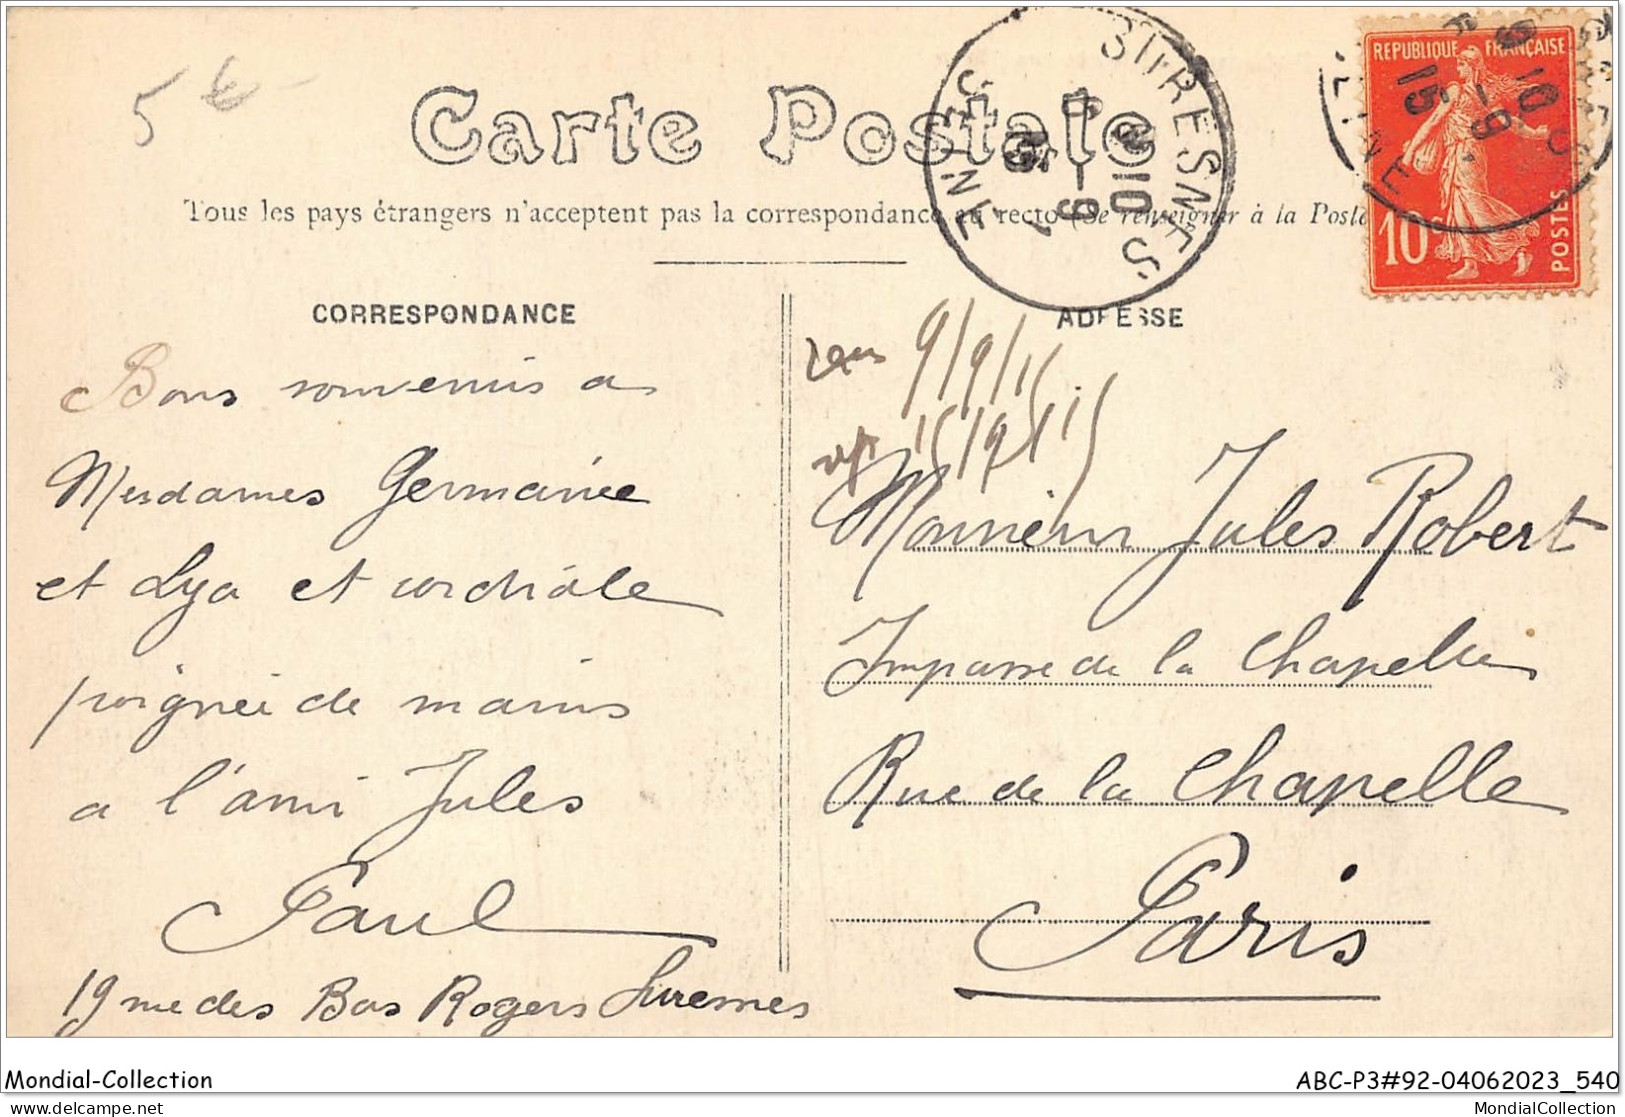 5€
Carte Postale
Tous les pays étrangers n'acceptent pas la correspondance au recto (Se renseigner à la Poste
SURESNES
SEINE
REPUBLIQUE FRANÇAISE
10c
POSTES
CORRESPONDANCE
ADRESSE
Bons souvenirs a
Mesdames Germaine
et Lya et cordiale
poignée de mains
a l'ami Jules
Paul
19 rue des Bas Rogers Suresnes
9/9/11
Monsieur Jules Robert
Impasse de la Chapelle
Rue de la Chapelle
Paris
Mondial-Collection
ABC-P3#92-04062023_540
delcampe.net
MondialCollection